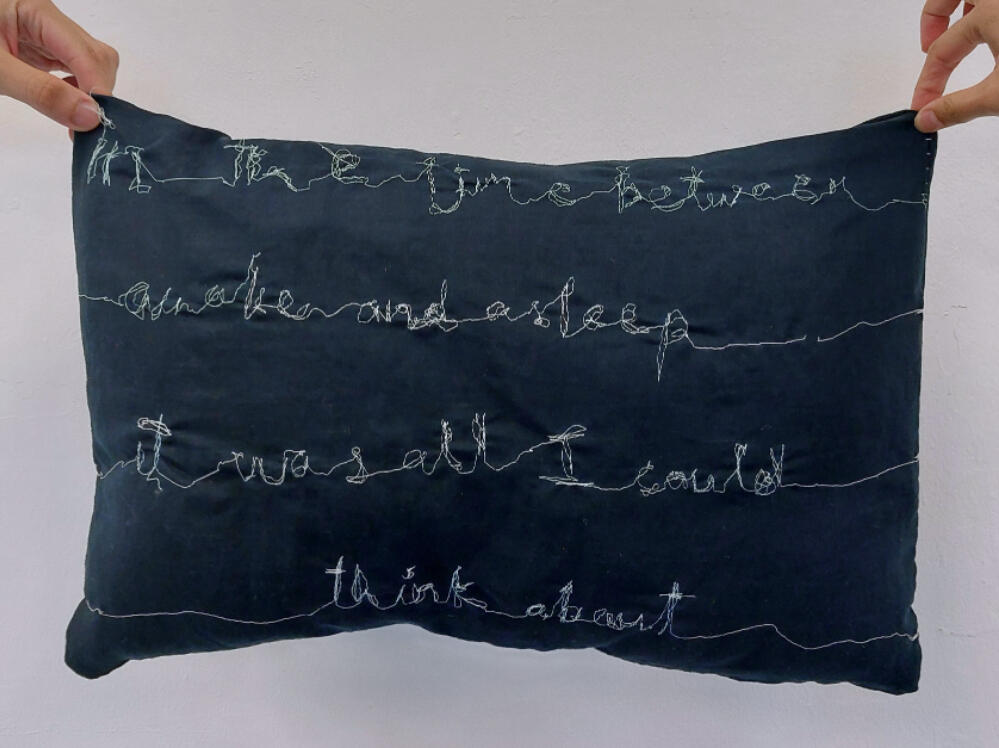 In The Time between
awake and asleep
it was all I could
think about